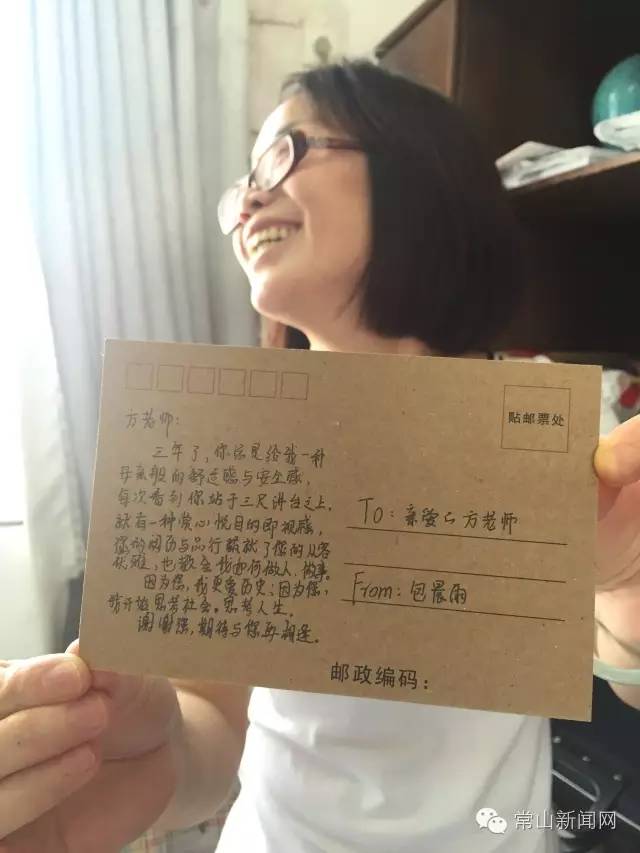 贴邮票处
方老师:
三年了,你总是给我一种
母亲般的舒适感与安全感,
每次看到你站于三尺讲台之上,
就有一种赏心悦目的即视感,
您的阅历与品行成就了您的从容
优雅,也教会我如何做人、做事。
因为您,我更爱历史;因为您,
我开始思考社会、思考人生。
谢谢您,期待与你再相逢。
To:亲爱的方老师
From:包晨雨
邮政编码:
常山新闻网